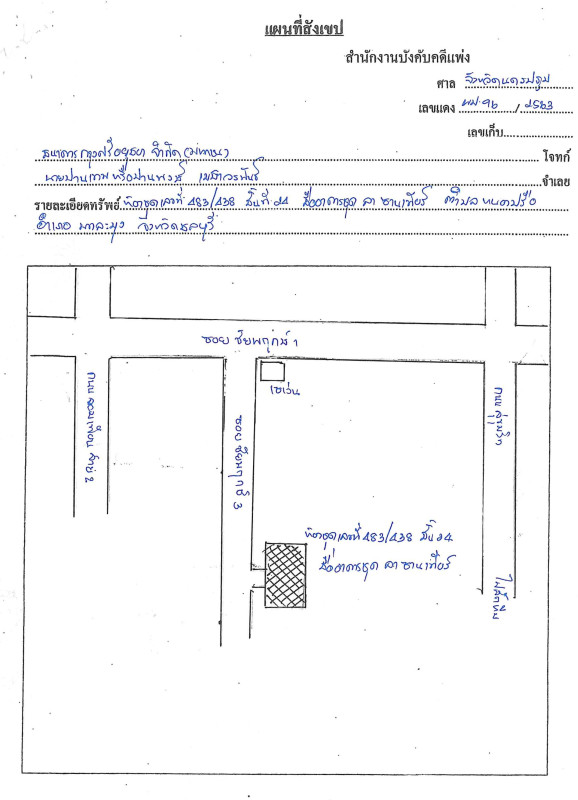 แผนที่สังเขป
สำนักงานบังคับคดีแพ่ง
ศาล จังหวัดนครปฐม
เลขแดง ผบ.96 / 2563
เลขเก็บ
ธนาคารกรุงศรีอยุธยา จำกัด (มหาชน) โจทก์
หรือ จำเลย
รายละเอียดทรัพย์ ห้องชุดเลขที่ 483/438 ชั้นที่ 24 ชื่ออาคารชุด ลา ซานเทียร์ ตำบล หนองปรือ
อำเภอ บางละมุง จังหวัดชลบุรี
ซอย ชัยพฤกษ์ 1
เซเว่น
ถนน จอมเทียน สาย 2
ซอย ชัยพฤกษ์ 3
ถนน สุขุมวิท
ห้องชุดเลขที่ 483/438 ชั้น 24
ชื่ออาคารชุด ลา ซานเทียร์
ไปสัตหีบ